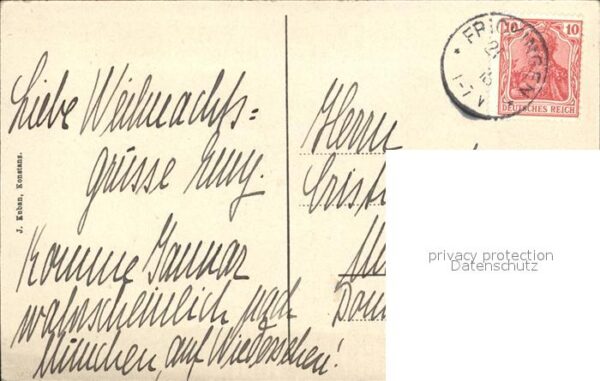 Liebe Weihnachts=
grüsse Emy.
Komme Januar
wahrscheinlich nach
München, auf Wiedersehen!
J. Kuban, Konstanz.
FRICKINGEN
1-7 V
10 10
DEUTSCHES REICH
Herrn
privacy protection
Datenschutz